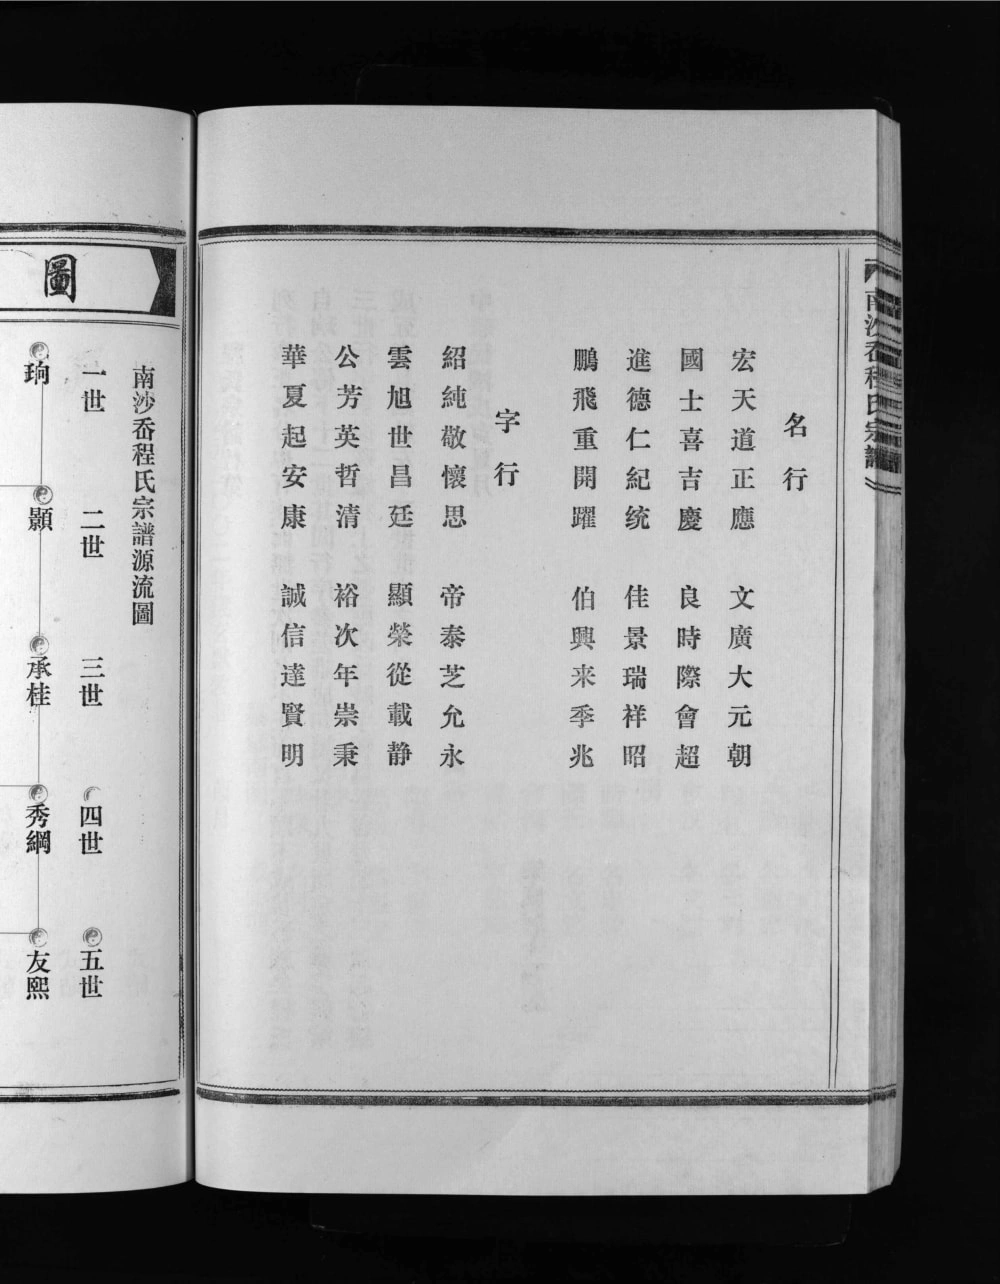 南沙岙程氏宗譜》
名行
宏天道正應 文廣大元朝
國士喜吉慶 良時際會超
進德仁紀统 佳景瑞祥昭
鵬飛重開躍 伯興来季兆
字行
紹純敬懷思 帝泰芝允永
雲旭世昌廷 顯榮從載静
公芳英哲清 裕次年崇秉
華夏起安康 誠信達賢明
圖
南沙岙程氏宗譜源流圖
一世 二世 三世 四世 五世
珦 顥 承桂 秀綱 友熙